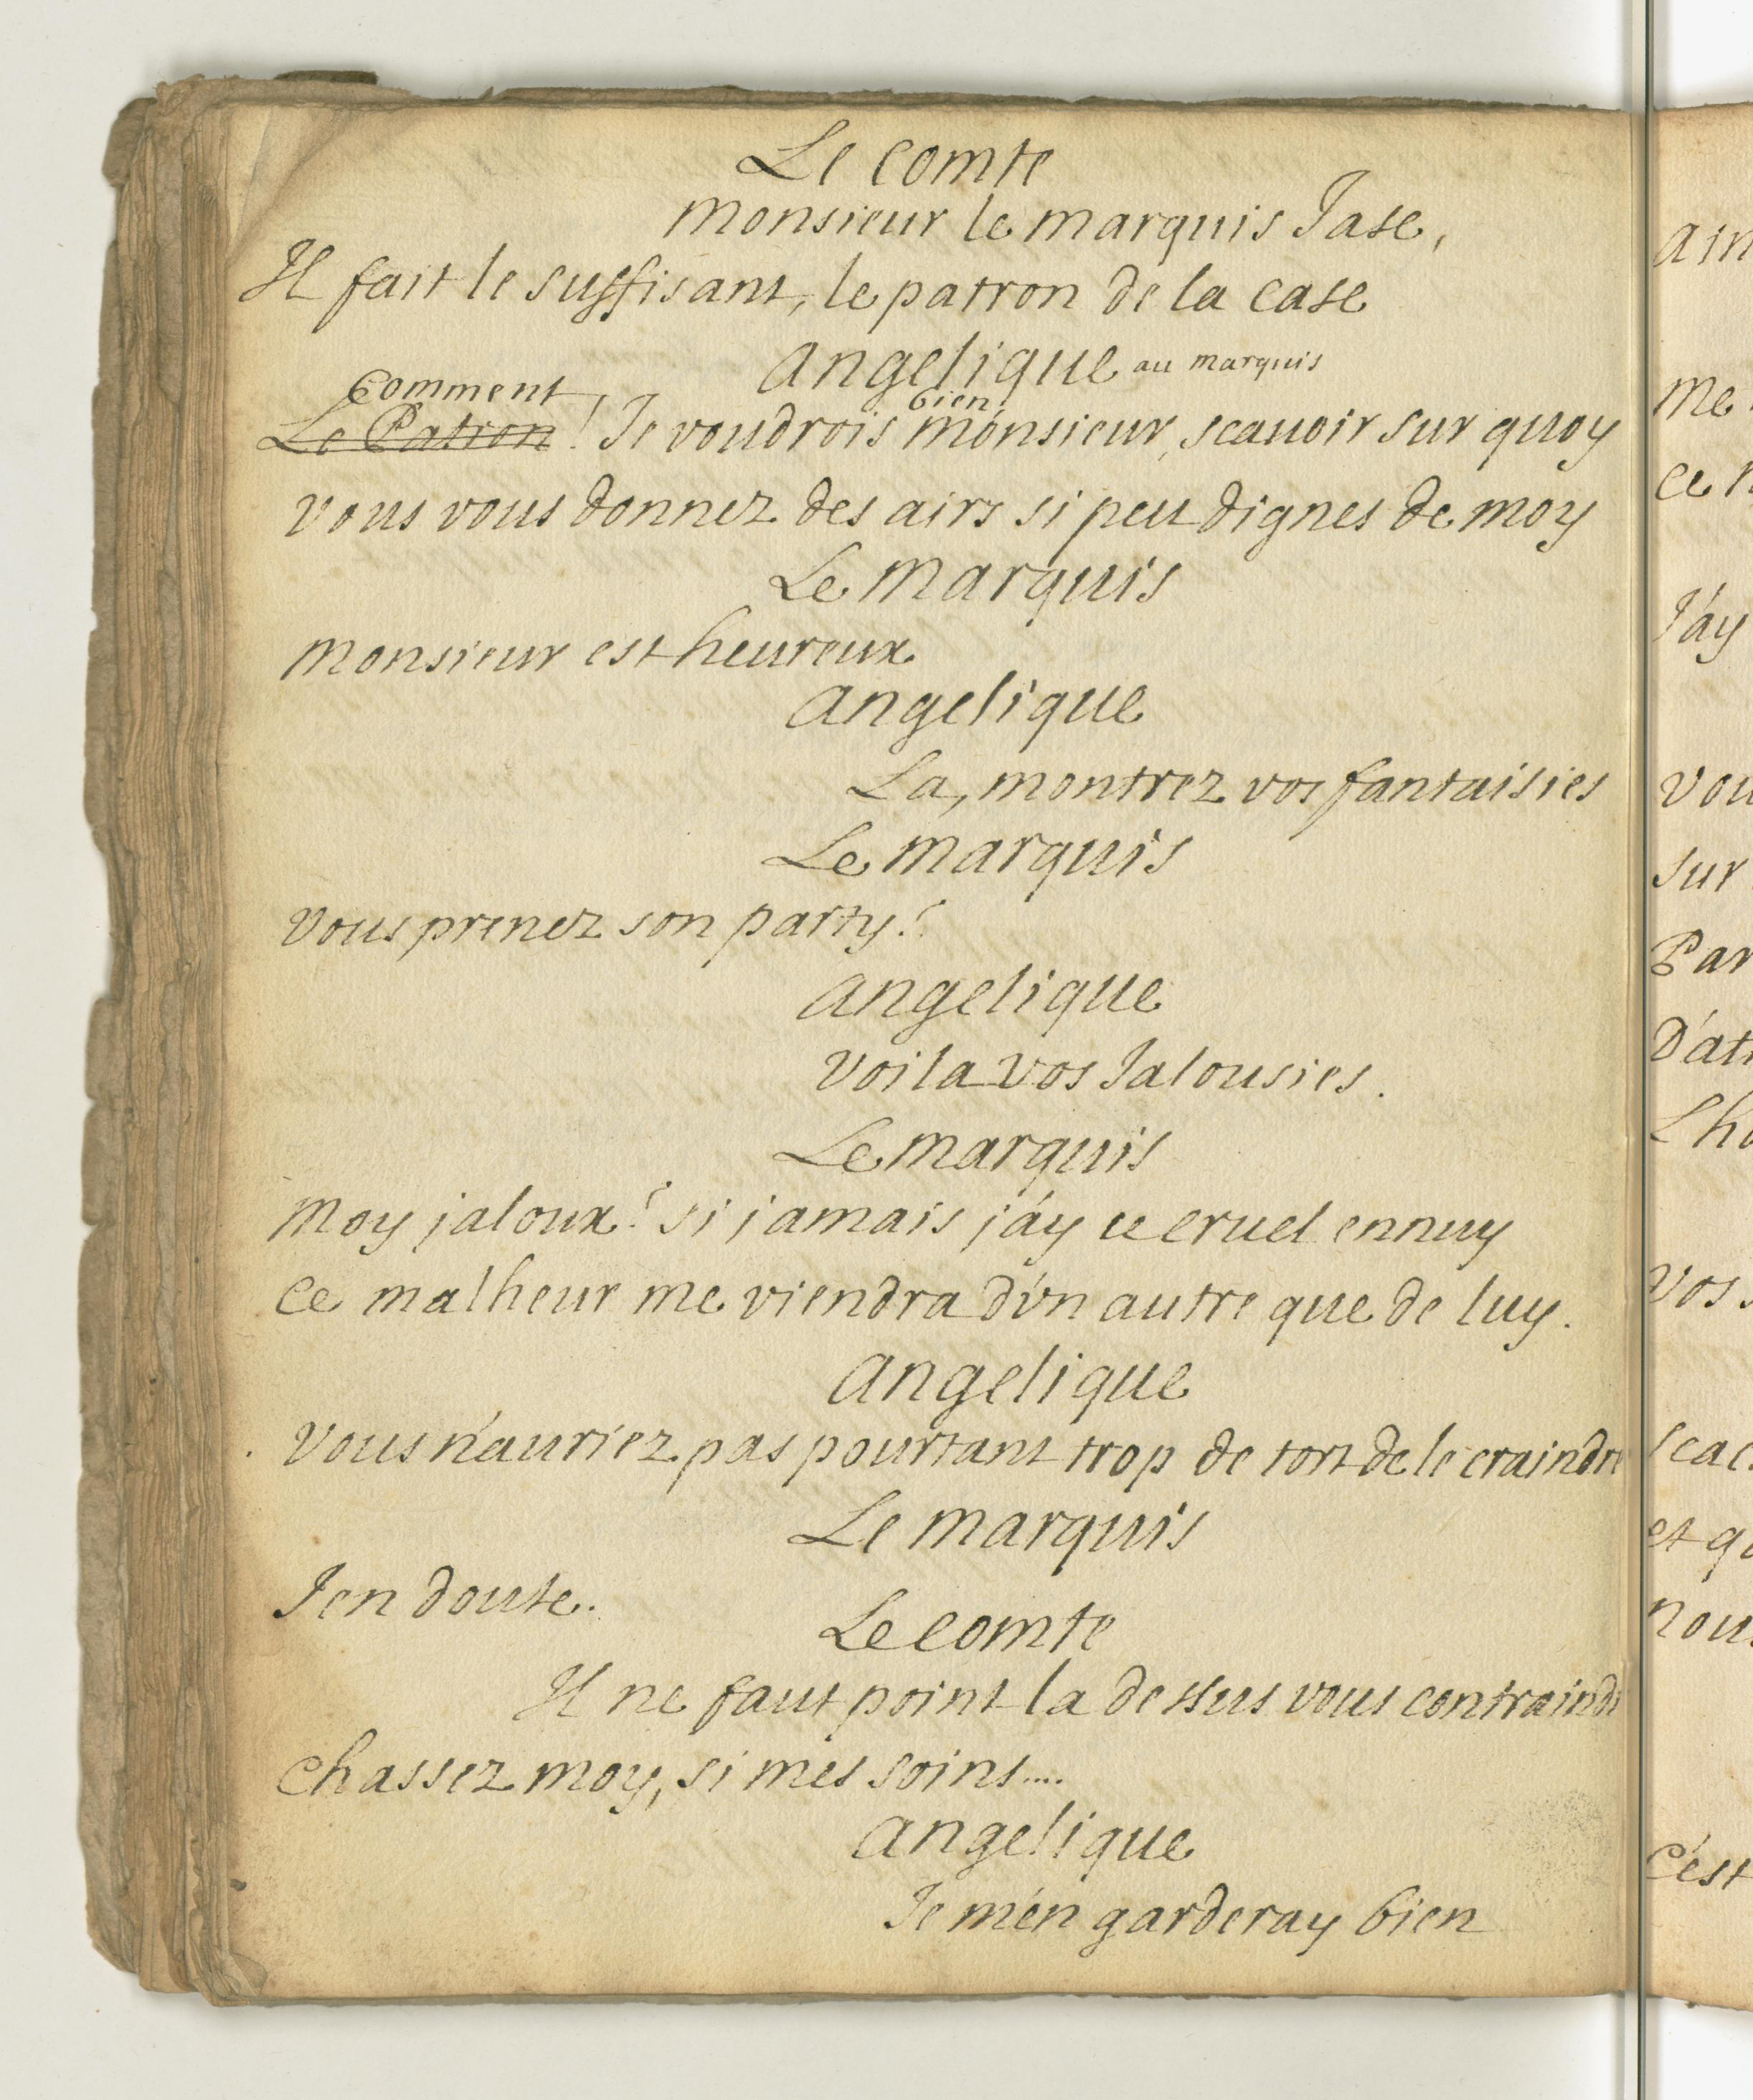 Le comte
monsieur le marquis Jase,
Il fait le suffisant, le patron de la case
angelique au marquis
Comment
Le Patron ! Je voudrois bien monsieur, scauoir sur quoy
vous vous donnez des airs si peu dignes de moy
Le marquis
monsieur est heureux
angelique
La, montrez vos fantaisies
Le marquis
vous prenez son party?
angelique
voila vos Jalousies.
Le marquis
moy jaloux? si jamais j'ay ce cruel ennuy
ce malheur me viendra d'vn autre que de luy.
angelique
vous n'auriez pas pourtant trop de tort de le craindre
Le marquis
J'en doute.
Le comte
Il ne faut point la dessus vous contraindr
chassez moy, si mes soins....
angelique
Je m'en garderay bien
ain
me
ce n
J'ay
vou
sur
Par
D'att
L'ho
vos s
scac
et qu
nous
c'est